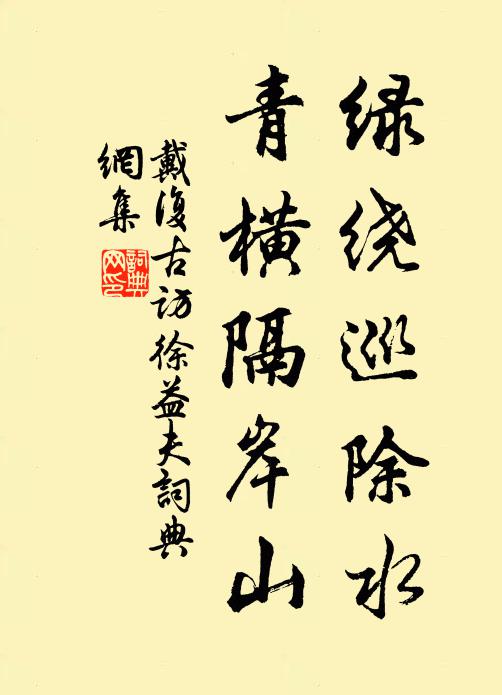 绿绕巡除水
青横隔岸山
戴復古访徐益夫詞典
網集
詞典网印